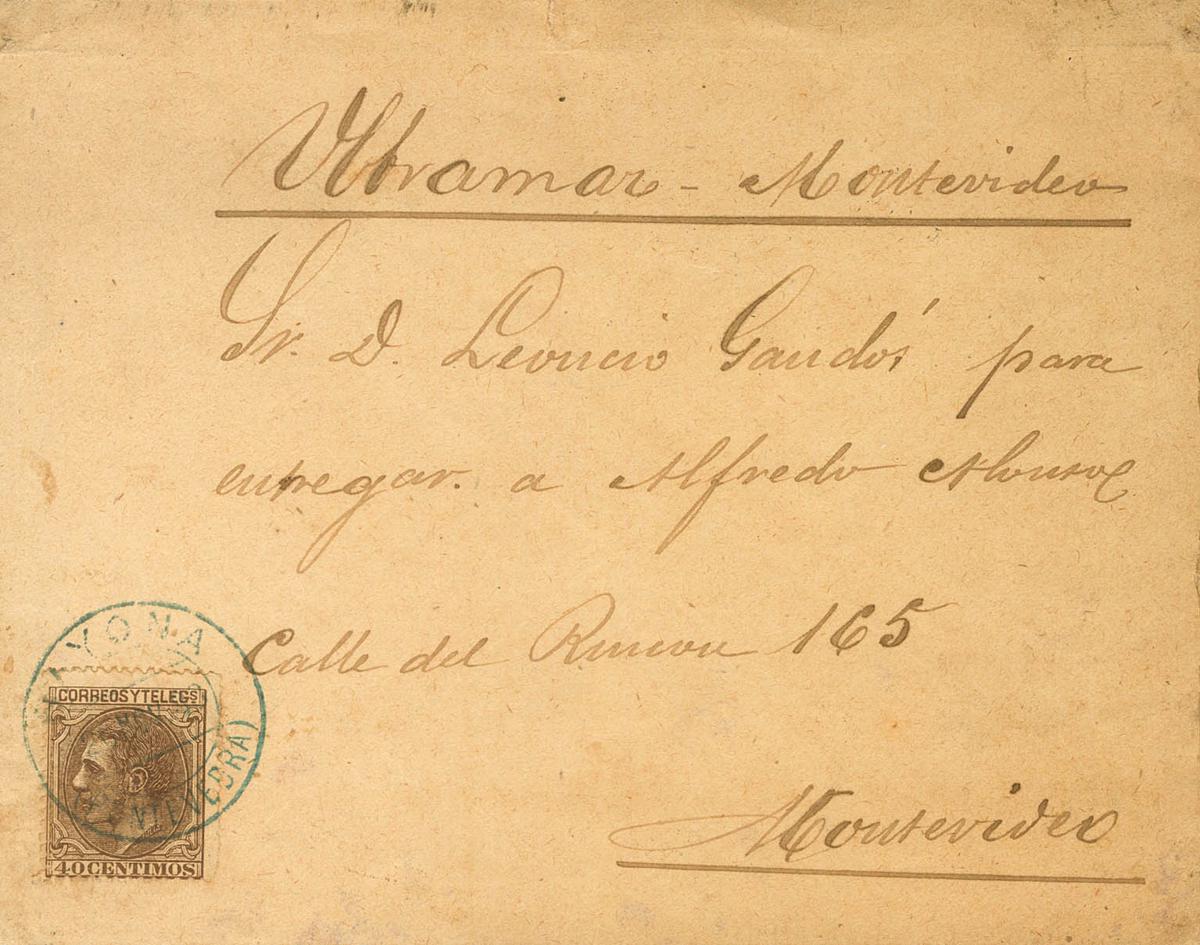 Ultramar - Montevideo
Sr. D. Leoncio Gandós para
entregar. a Alfredo Alonso
Calle del Rincon 165
Montevideo
YONA
(PONTEVEDRA)
CORREOS Y TELEGS
40 CENTIMOS